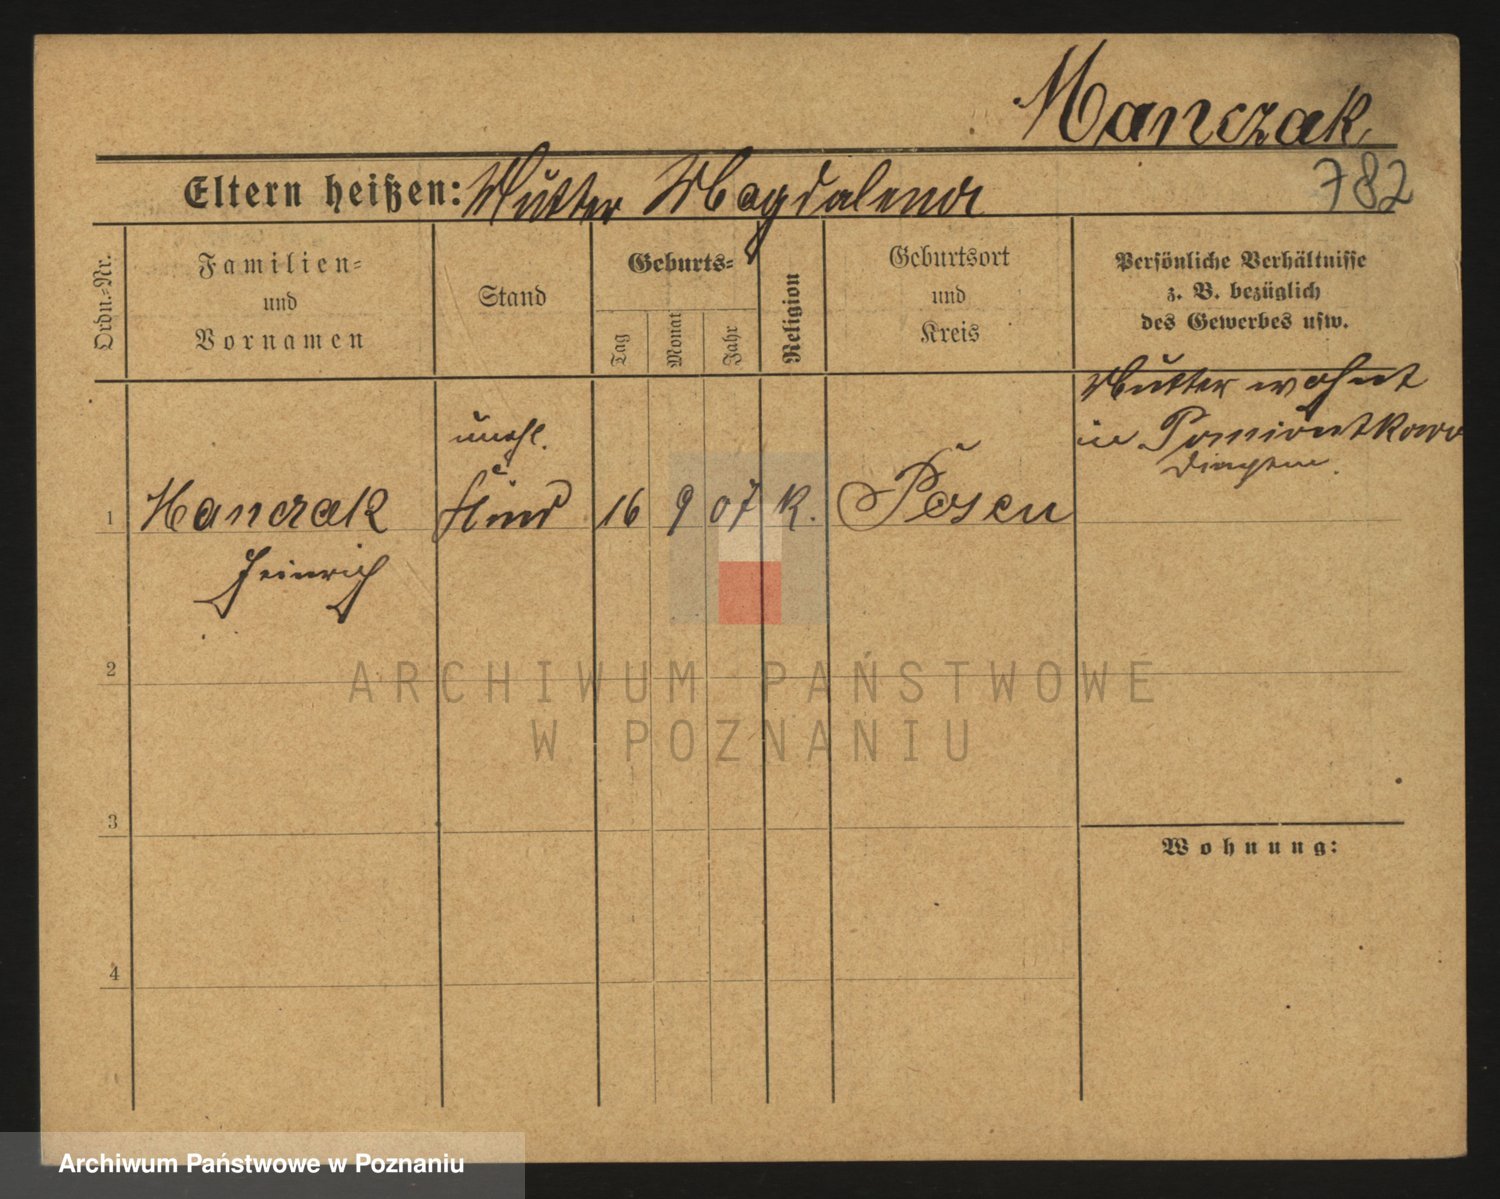 Manczak
782
Eltern heißen: Mutter Magdalena
Ordn.-Nr.
Familien-
und
Vornamen
Stand
Geburts-
Tag
Monat
Jahr
Religion
Geburtsort
und
Kreis
Persönliche Verhältnisse
z. B. bezüglich
des Gewerbes usw.
Mutter wohnt
in Pomiontkowo
1
Manczak
Heinrich
unehl.
Kind
16
9
07
K.
Posen
2
3
4
Wohnung:
ARCHIWUM PAŃSTWOWE
W POZNANIU
Archiwum Państwowe w Poznaniu